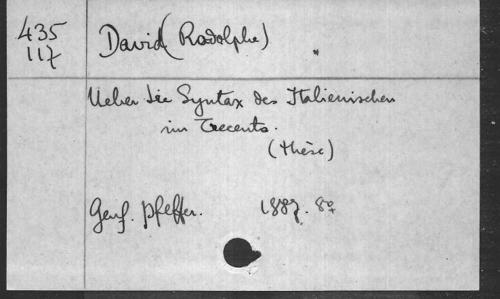 435
117
David (Rodolphe)
Ueber die Syntax des Italienischen
im Trecento.
(thèse)
Genf. Pfeffer. 1887. 8º